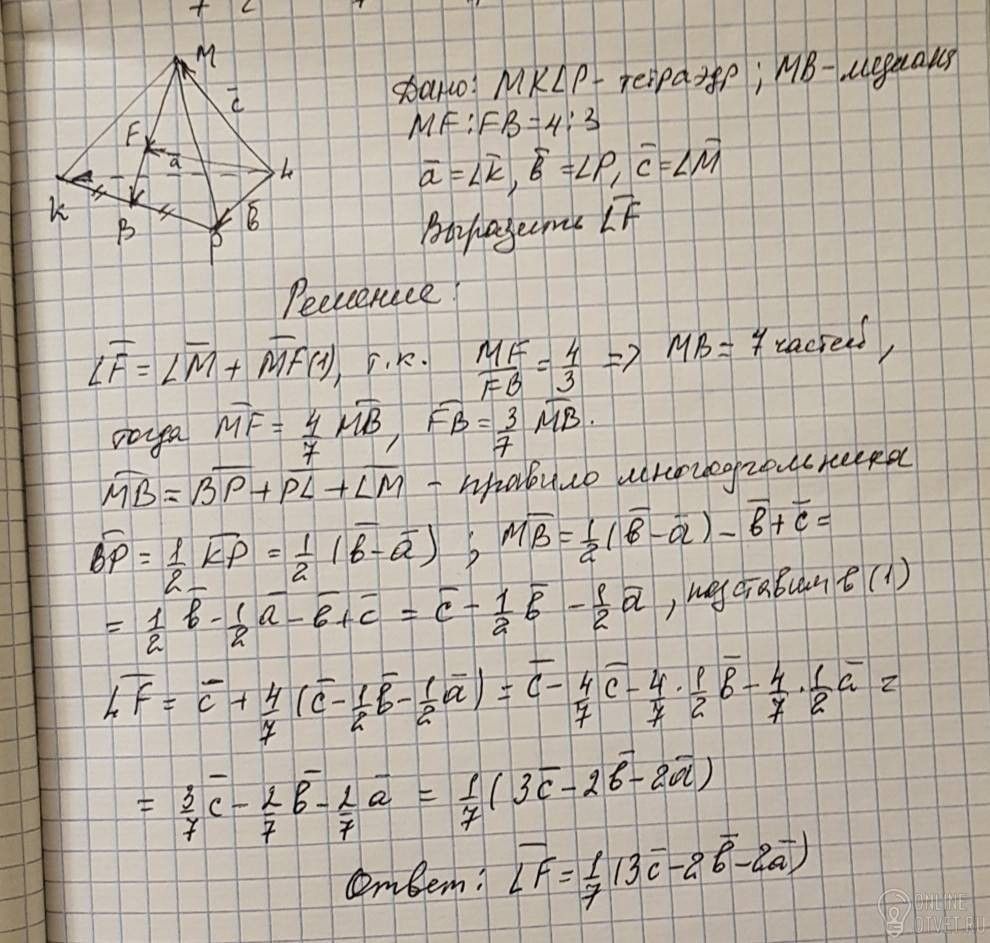 M
c̄
F
ā
L
K
B
P
b̄
Дано: MKLP - тетраэдр; MB - медиана
MF:FB=4:3
ā = LK̄, b̄ = LP̄, c̄ = LM̄
Выразить LF̄
Решение:
LF̄ = LM̄ + MF̄ (1), т.к. MF/FB = 4/3 => MB = 7 частей,
тогда MF̄ = 4/7 MB̄, FB̄ = 3/7 MB̄.
MB̄ = BP̄ + PL̄ + LM̄ - правило многоугольника
BP̄ = 1/2 KP̄ = 1/2 (b̄ - ā) ; MB̄ = 1/2 (b̄ - ā) - b̄ + c̄ =
= 1/2 b̄ - 1/2 ā - b̄ + c̄ = c̄ - 1/2 b̄ - 1/2 ā, подставим в (1)
LF̄ = c̄ + 4/7 (c̄ - 1/2 b̄ - 1/2 ā) = c̄ - 4/7 c̄ - 4/7 · 1/2 b̄ - 4/7 · 1/2 ā =
= 3/7 c̄ - 2/7 b̄ - 2/7 ā = 1/7 (3c̄ - 2b̄ - 2ā)
Ответ: LF̄ = 1/7 (3c̄ - 2b̄ - 2ā)
ONLINE
OTVET.RU